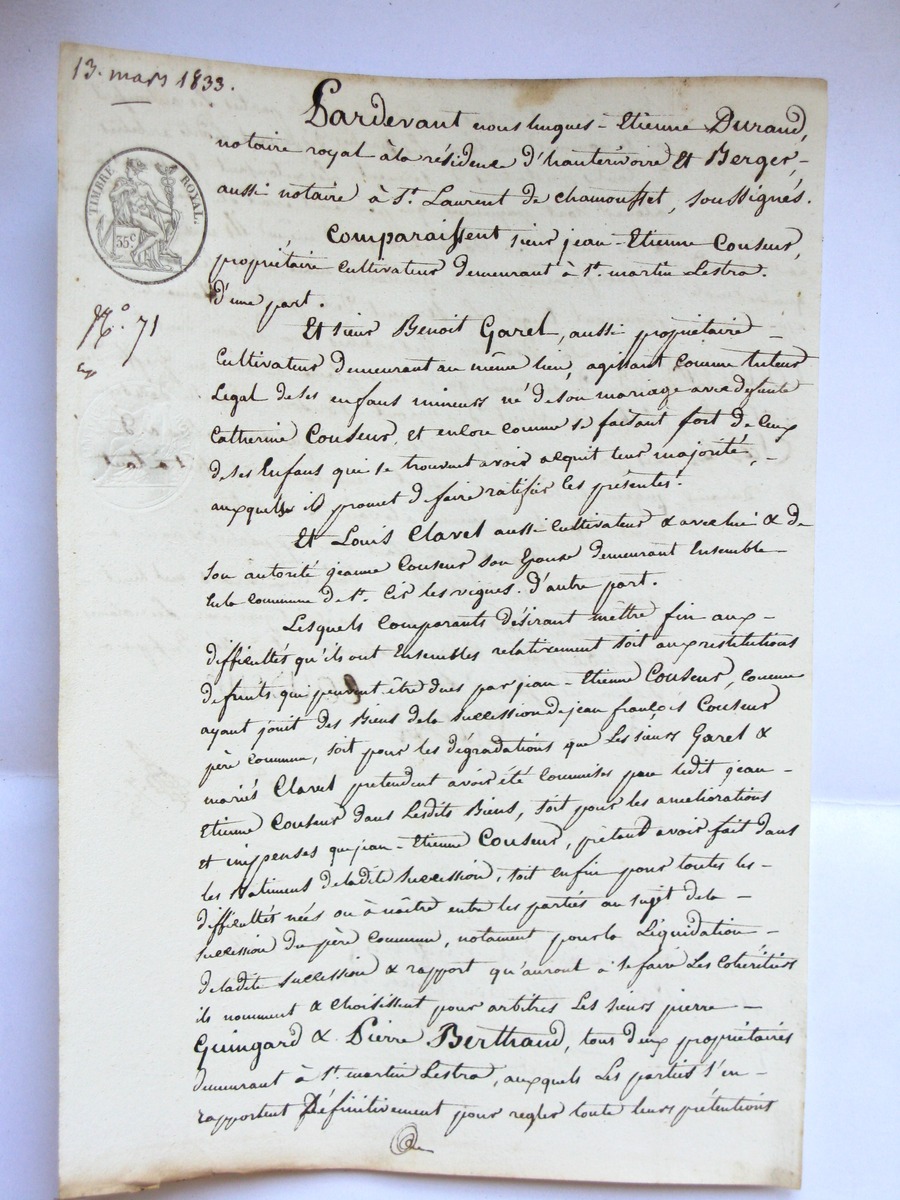 13. mars 1833.
Pardevant nous hugues-Etienne Durand,
notaire royal à la résidence d'hauterivoire et Berger,-
aussi notaire à St. Laurent de chamousset, soussignés.
TIMBRE ROYAL.
35c
Comparaissent sieur jean-Etienne Couseur,
propriétaire cultivateur demeurant à St. martin Lestra.
d'une part.
No. 71
Et sieur Benoit Garel, aussi propriétaire-
Cultivateur demeurant au même lieu, agissant comme tuteur
Legal de ses enfans mineurs né de son mariage avec defunte
Catherine Couseur, et encore comme se faisant fort de ceux
de ses Enfans qui se trouvent avoir acquit leur majorité,-
auxquels il promet de faire ratifier ces présentes.
Et Louis Clavel aussi Cultivateur & avec lui & de
son autorité jeanne Couseur son Epouse demeurant Ensemble-
En la commune de St. Cir les vignes. d'autre part.
Lesquels comparants désirant mettre fin aux-
difficultés qu'ils ont Ensembles relativement soit aux restitutions
de fruits qui peuvent être dues par jean-Etienne Couseur, comme
ayant jouit des Biens de la succession de jean françois Couseur
père commun, soit pour les dégradations que Les sieurs Garel &
mariés Clavel pretendent avoir été commises par ledit jean-
Etienne Couseur dans Lesdits Biens, soit pour les ameliorations
et impenses que jean-Etienne Couseur, prétend avoir fait dans
les Batimens de ladite succession, soit enfin pour toutes les-
difficultés nées ou à naître entre les parties au sujet de la-
succession du père commun, notament pour la Liquidation-
de ladite succession & rapport qu'auront à se faire Les cohéritiers
ils nomment & choisissent pour arbitres Les sieurs pierre-
Guingard & Pierre Berthrand, tous deux propriétaires
demeurant à St. martin Lestra, auxquels Les parties s'en-
rapportent Définitivement pour regler toute leurs prétentions